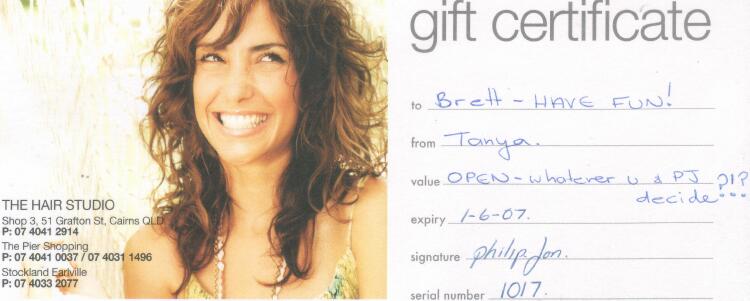 gift certificate
to Brett - HAVE FUN!
from Tanya.
value OPEN - whatever u & PJ
decide ?!?...
expiry 1-6-07.
signature philip Jon.
serial number 1017.
THE HAIR STUDIO
Shop 3, 51 Grafton St, Cairns QLD
P: 07 4041 2914
The Pier Shopping
P: 07 4041 0037 / 07 4031 1496
Stockland Earlville
P: 07 4033 2077